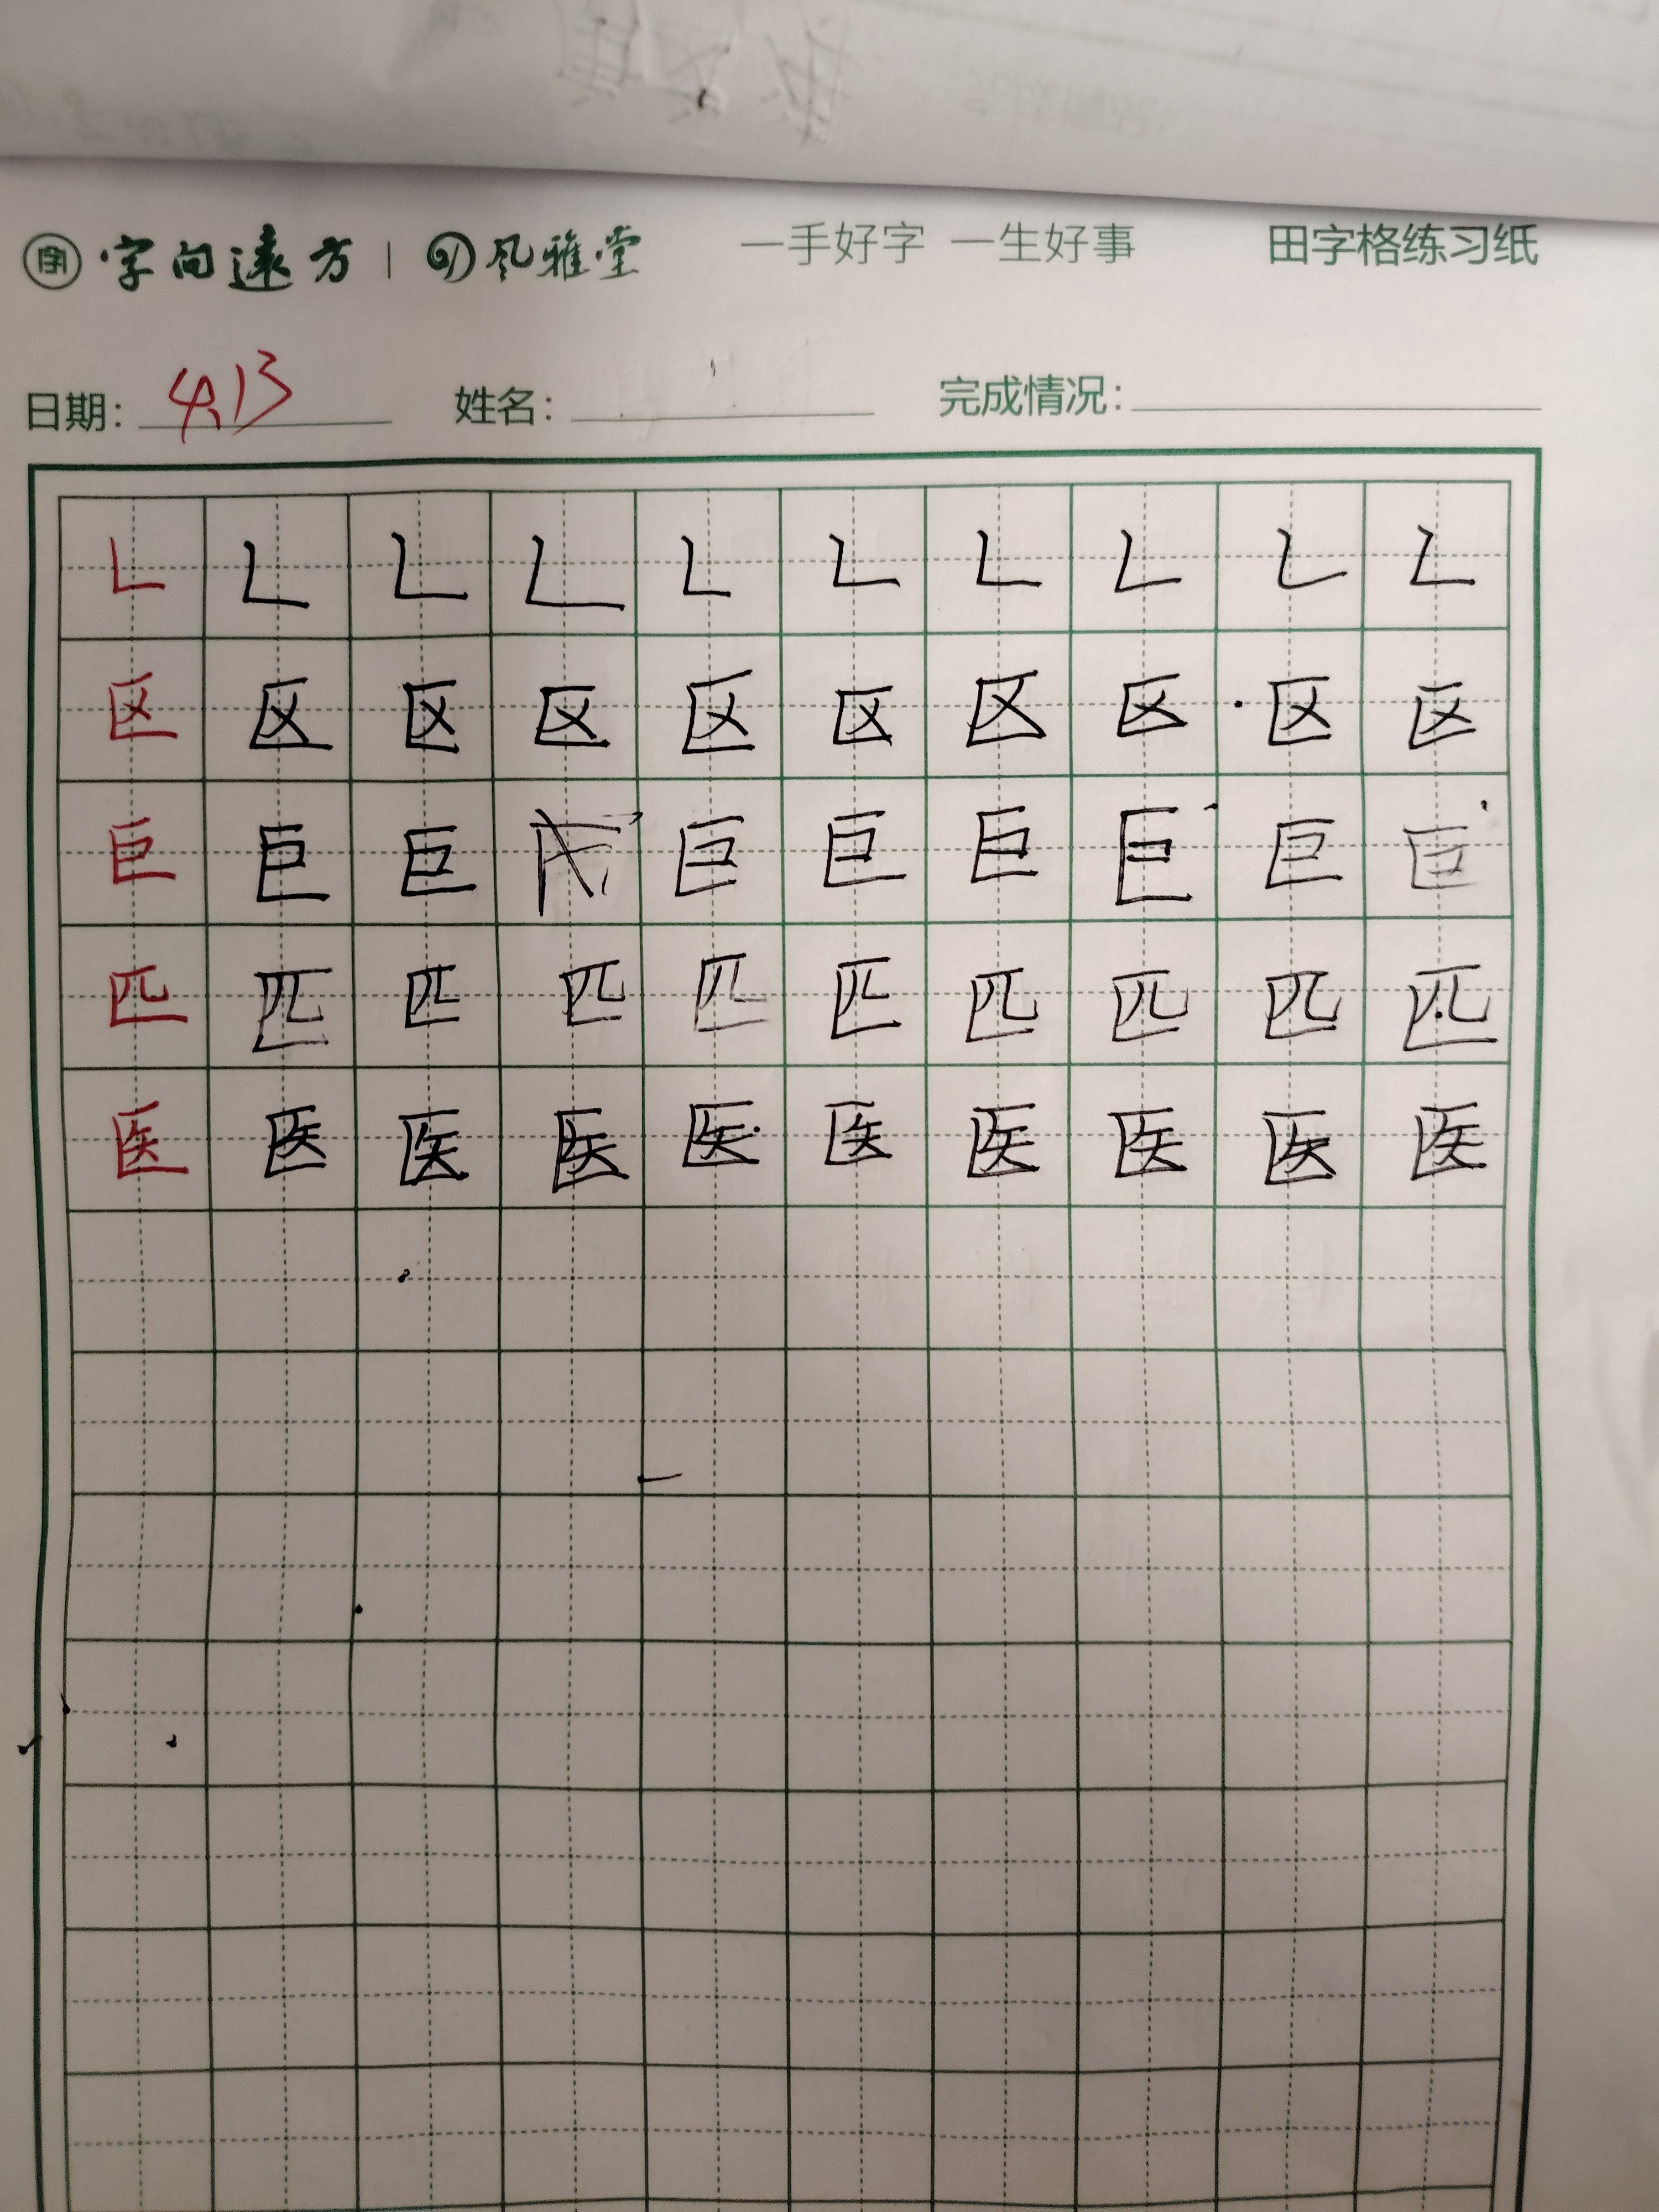 字向遠方 风雅堂 一手好字 一生好事 田字格练习纸
日期: 4.13 姓名: 完成情况:
𠃊 𠃊 𠃊 𠃊 𠃊 𠃊 𠃊 𠃊 𠃊 𠃊
区 区 区 区 区 区 区 区 区 区
巨 巨 巨 巨 巨 巨 巨 巨
匹 匹 匹 匹 匹 匹 匹 匹 匹 匹
医 医 医 医 医 医 医 医 医 医